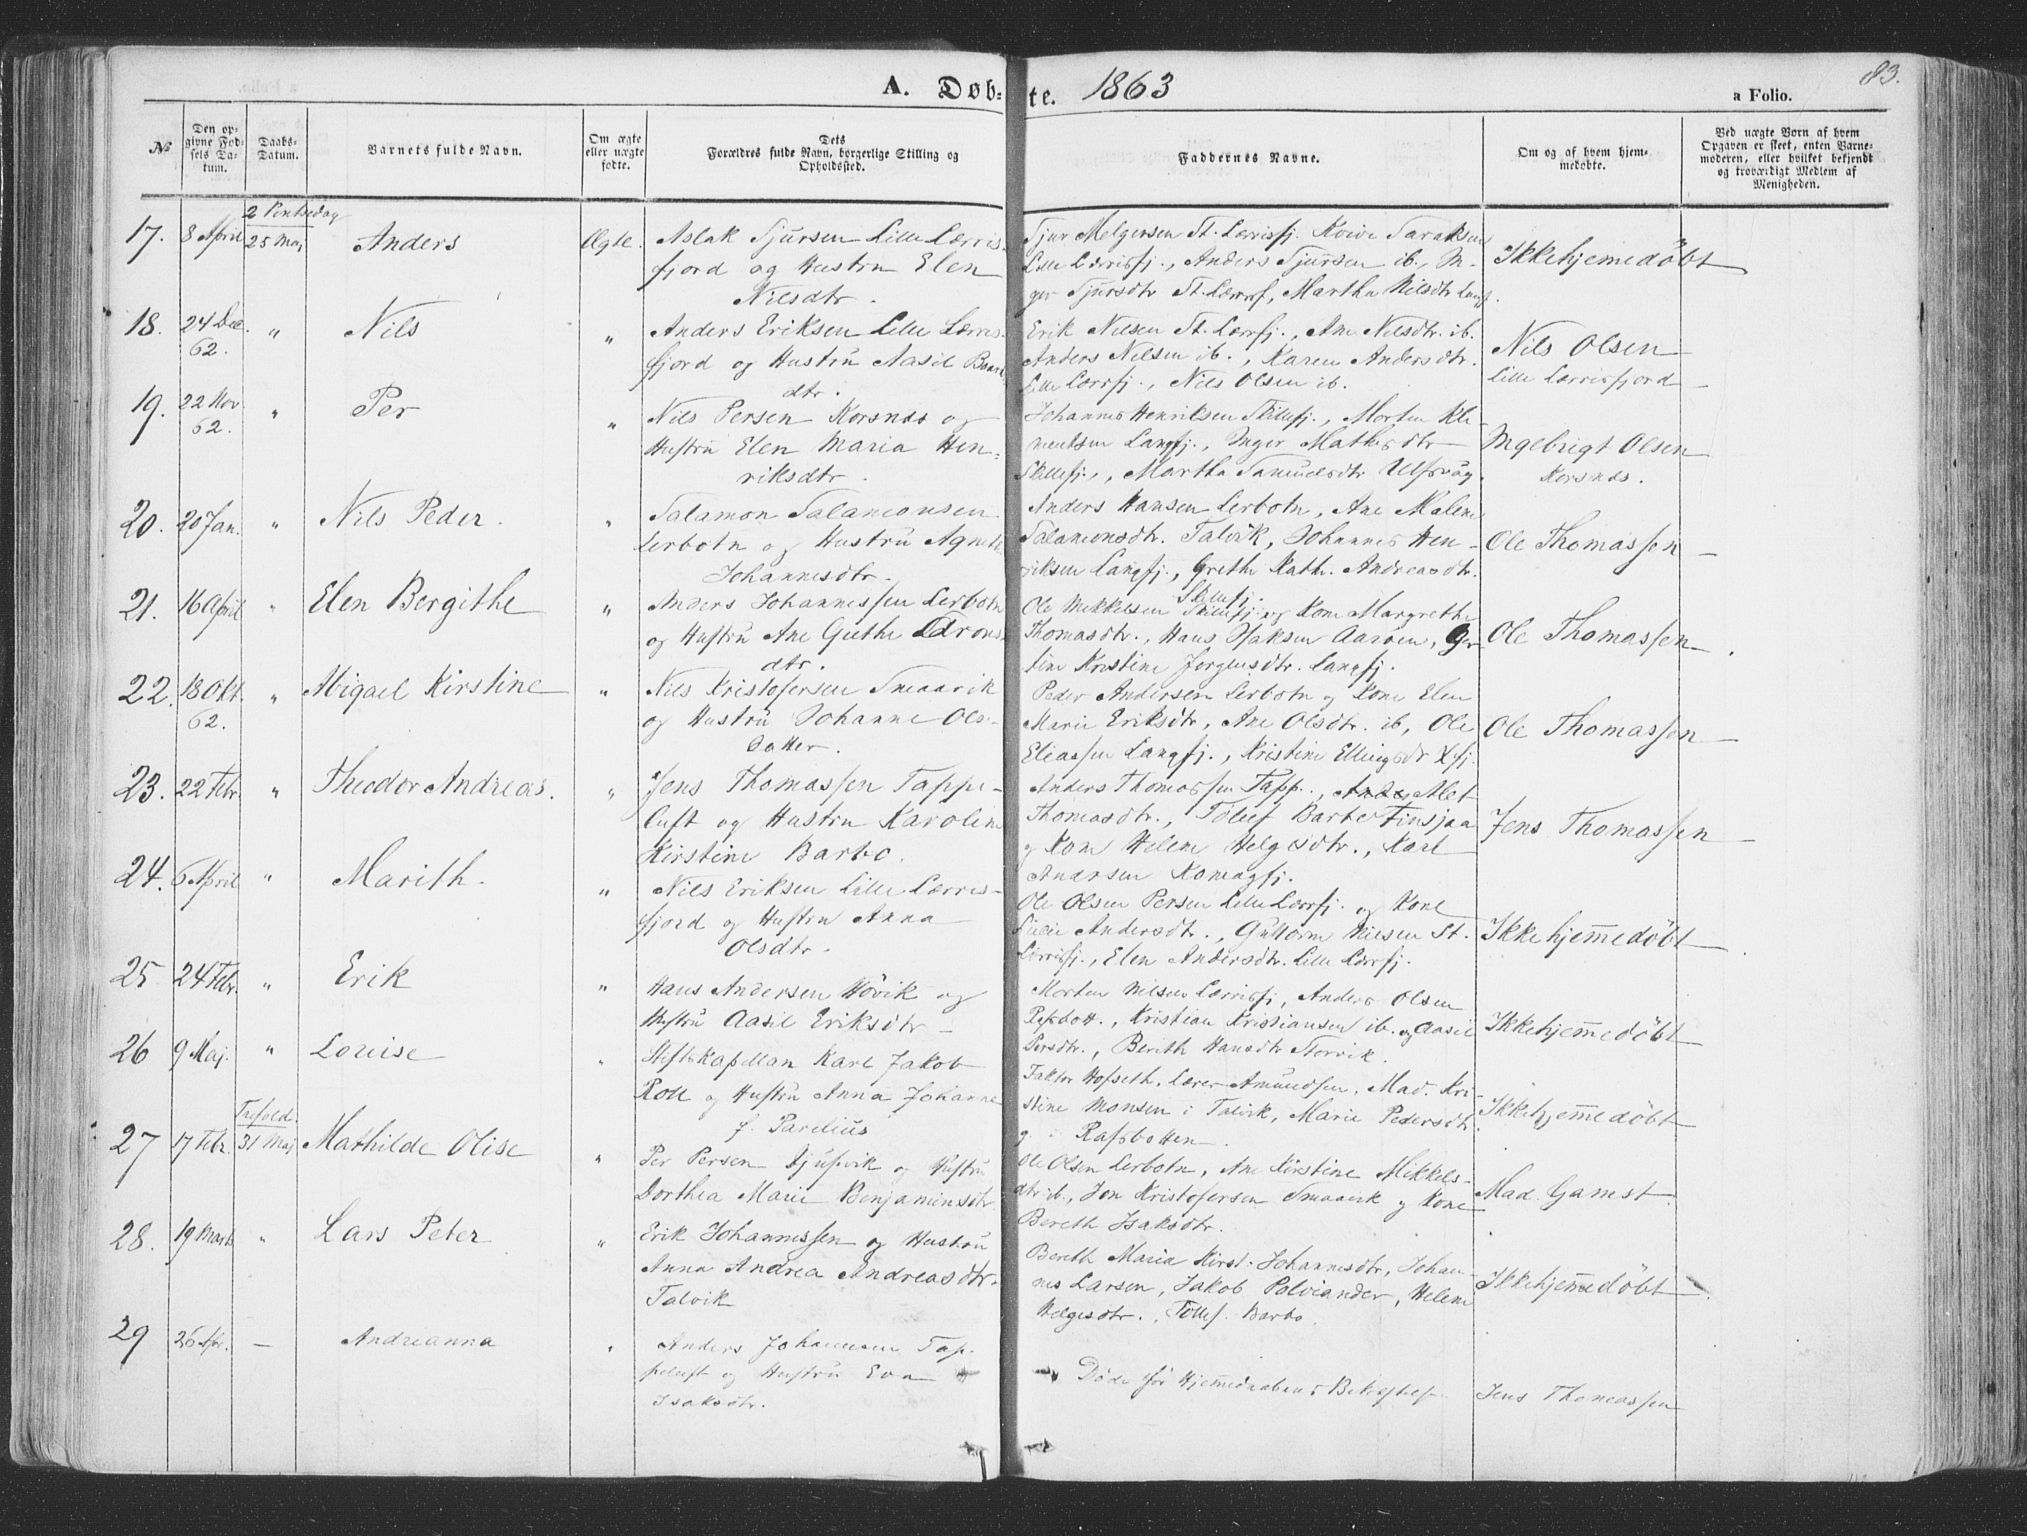 A. Døb- te. 1863
a Folio. 83.
No
Den opgivne Fødsels Datum.
Daabs-Datum.
Barnets fulde Navn.
Om ægte eller uægte fødte.
Dets Forældres fulde Navn, borgerlige Stilling og Opholdssted.
Faddernes Navne.
Om og af hvem hjemmedøbte.
Ved uægte Børn af hvem Opgaven er skeet, enten Barnemoderen, eller hvilket bekjendt og troværdigt Medlem af Menigheden.
2 Pintsedag
17. 8 April 25 Maj Anders Ægte. Aslak Sjursen Lille Lærris-
fjord og Hustru Elen
Nilsdtr.
Sjur Melgersen St. Lærrisfj.
Lille Lærrisfj., Anders Sjursen ib.,
Sjursdtr St. Lærrisf, Martha Nilsdtr
Ikkehjemedøbt
18. 24 Dec. 62. " Nils " Anders Eriksen Lille Lærris-
fjord og Hustru Aasil
dtr.
Erik Nilsen St. Lærrfj., Ane Nilsdtr. ib.
Anders Nilsen ib., Karen Andersdtr.
Lille Lærrfj., Nils Olsen ib.
Nils Olsen
Lille Lærrisfjord
19. 22 Nov 62. " Per " Nils Persen Korsnæs og
Hustru Elen Maria Hen-
riksdtr.
Johannes Henriksen Skillefj., Morten Kle-
mentsen Langfj., Inger Mathisdtr
Skillefj., Martha Samuelsdtr Ulfsvåg.
Ingebrigt Olsen
Korsnæs.
20. 20 Jan. " Nils Peder. " Salamon Salamonsen
Lerbotn og Hustru Agnete
Johannesdtr.
Anders Hansen Lerbotn, Ane Malene
Salamonsdtr. Talvik, Johannes Hen-
riksen Langfj., Grethe Kath. Andreasdtr.
Skillefj.
Ole Thomassen
21. 16 April " Elen Bergithe " Anders Johannessen Lerbotn
og Hustru Ane Grethe
dtr.
Ole Mikkelsen Skillefj. og Kone Margrethe
Thomasdtr., Hans Isaksen Aarøen,
tine Kristine Jørgensdtr. Langfj.
Ole Thomassen
22. 18 Okt. 62. " Abigael Kirstine " Nils Kristofersen Smaavik
og Hustru Johanne Ols-
datter.
Peder Andersen Lerbotn og Kone Elen
Marie Eriksdtr, Ane Olsdtr. ib, Ole
Eliassen Langfj., Kristine Ellingsdtr
Ole Thomassen
23. 22 Febr. " Theodor Andreas. " Jens Thomassen Tappe-
luft og Hustru Karoline
Kirstine Barbo.
Anders Thomassen Tapp., Alet
Thomasdtr., Tollef Barbo
og Kone Helene Helgesdtr., Karl
Andersen Komagfj.
Jens Thomassen
24. 6 April " Marith. " Nils Eriksen Lille Lærris-
fjord og Hustru Anna
Olsdtr.
Ole Olsen Persen Lille Lærrfj. og Kone
Andersdtr., Guttorm Nielsen St.
Lærrisfj., Elen Andersdtr. Lille Lærrfj.
Ikkehjemedøbt
25 24 Febr. " Erik " Hans Andersen Høvik og
Hustru Aasil Eriksdtr
Morten Nilsen Lærrisfj, Anders Olsen
Rafsbott., Kristian Kristiansen ib. og Aasil
Persdtr., Berith Hansdtr Storvik.
Ikkehjemedøbt
26 9 Maj. " Louise " Stiftskapellan Karl Jakob
Roll og Hustru Anna Johanne
f. Parelius
Faktor Hofseth, Lærer Amundsen, Mad. Kri-
stine Monsen i Talvik, Marie Pedersdtr
i Rafsbotten.
Ikkehjemedøbt
Trefold.
27 17 Febr. 31 Maj Mathilde Olise " Per Persen Djupvik og Hustru
Dorthea Marie Benjaminsdtr.
Ole Olsen Lerbotn, Ane Kirstine Mikkels-
dtr ib., Jon Kristofersen Smaavik og Kone
Bereth Isaksdtr.
Mad. Gamst.
28. 19 Marts " Lars Peter " Erik Johannessen og Hustru
Anna Andrea Andreasdtr.
Talvik
Bereth Maria Kirst. Johannesdtr, Johan-
nes Larsen, Jakob Palviander, Helene
Helgesdtr., Tollef Barbo
Ikkehjemedøbt
29 26 Apr. — Andreanna " Anders Johannesen Tap-
peluft og Hustru Eva
Isaksdtr.
Døde før Hjemmedaabens
Jens Thomassen